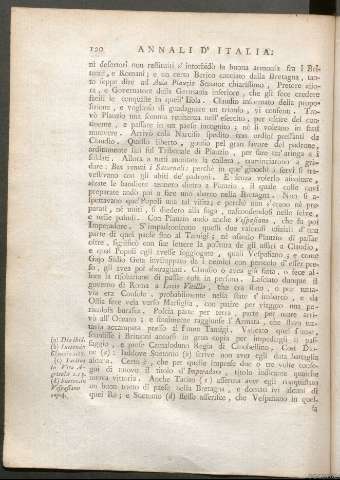 120 ANNALI D' ITALIA:
ni desertori non restituiti s'intorbidò la buona armonia fra i Bri-
tanni, e Romani; e un certo Berico cacciato dalla Bretagna, tan-
to seppe dire ad Aulo Plauzio Senator chiarissimo, Pretore allo-
ra, e Governatore della Germania inferiore, che gli fece credere
facili le conquiste in quell' Isola. Claudio informato della propo-
sizione, e voglioso di guadagnare un trionfo, vi consentì. Tro-
vò Plauzio una somma renitenza nell' esercito, per uscire del con-
tinente, e passare in un paese incognito; nè li voleano in fatti
muovere. Arrivò colà Narciso spedito con ordini pressanti da
Claudio. Questo liberto, gonfio pel gran favore del padrone,
arditamente salì sul Tribunale di Plauzio, per fare un'aringa a i
soldati. Allora a tutti montata la collera, cominciarono a gri-
dare: Ben venuti i Saturnali; perchè in que' giuochi i servi si tra-
vestivano con gli abiti de' padroni. E senza volerlo ascoltare,
alzate le bandiere tennero dietro a Plauzio, il quale colle navi
preparate andò poi a fare uno sbarco nella Bretagna. Non si a-
spettavano que' Popoli una tal visita; e perchè non s'erano nè pre-
parati, nè uniti, si diedero alla fuga, nascondendosi nelle selve,
e nelle paludi. Con Plauzio andò anche Vespasiano, che fu poi
Imperadore. S'impadronirono questi due valenti ufiziali d'una
parte di quei paesi fino al Tamigi; nè osando Plauzio di passar
oltre, significò con sue lettere la positura de gli affari a Claudio,
e quai Popoli egli avesse soggiogato, quali Vespasiano; e come
Gajo Sidio Geta inviluppato da i nemici con pericolo d'esser pre-
so, gli avea poi sbaragliati. Claudio o avea già fatta, o fece al-
lora la risoluzione di passar colà in persona. Lasciato dunque il
governo di Roma a Lucio Vitellio, che era stato, o pur tutta-
via era Console, probabilmente nella state s'imbarcò, e da
Ostia fece vela verso Marsiglia, con patire per viaggio una pe-
ricolosa burasca. Poscia parte per terra, parte per mare arri-
vò all' Oceano; e finalmente raggiunse l'Armata, che stava tut-
tavia accampata presso al fiume Tamigi. Valicato quel fiume,
sconfisse i Britanni accorsi in gran copia per impedirgli il pas-
saggio, e prese Camaloduno Reggia di Cinobellino. Così Dio-
ne (a); laddove Suetonio (b) scrive non aver egli data battaglia
alcuna. Certo è, che per quelle imprese due o tre volte conse-
guì di nuovo il titolo d'Imperadore, titolo indicante qualche
nuova vittoria. Anche Tacito (c) asserisce aver egli conquistato
un buon tratto di paese nella Bretagna, e domati ivi alcuni di
quei Re; e Suetonio (d) stesso asserisce, che Vespasiano in quel-
la
(a) Dio lib.
(b) Sueton. in
Claudio
(c) Tacitus
in Vita A-
gricolæ c. 13.
(d) Sueton. in
Vespasiano
cap. 4.